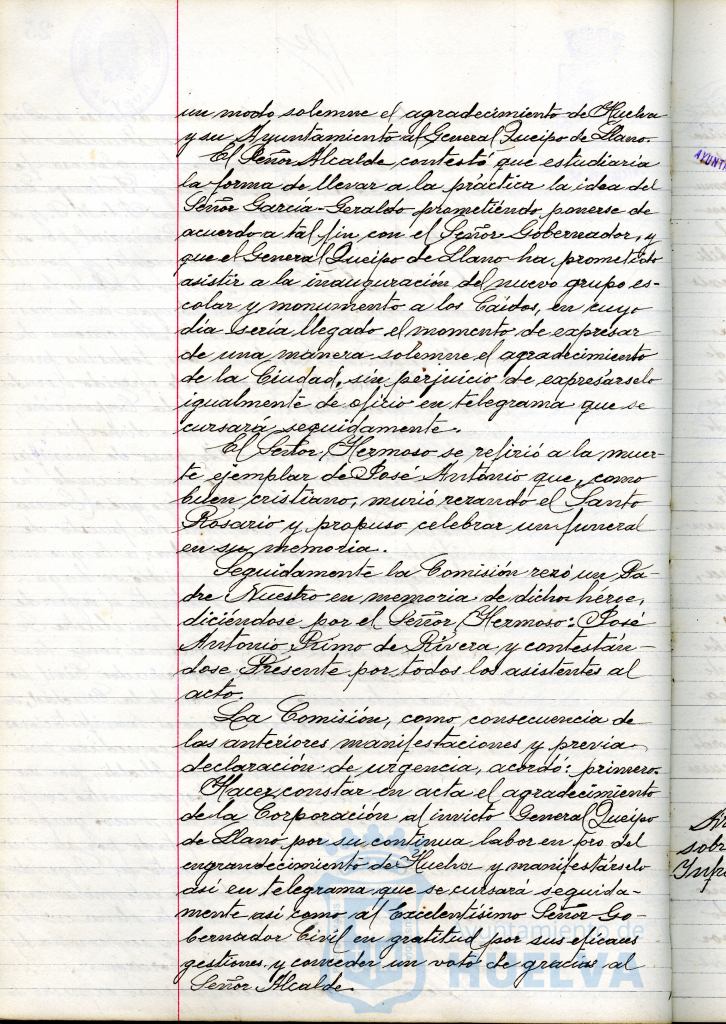 un modo solemne el agradecimiento de Huelva
y su Ayuntamiento al General Queipo de Llano.
El Señor Alcalde contestó que estudiaría
la forma de llevar a la práctica la idea del
Señor García-Geraldo prometiendo ponerse de
acuerdo a tal fin con el Señor Gobernador, y
que el General Queipo de Llano ha prometido
asistir a la inauguración del nuevo grupo es-
colar y monumento a los Caídos, en cuyo
día sería llegado el momento de expresar
de una manera solemne el agradecimiento
de la Ciudad, sin perjuicio de expresárselo
igualmente de oficio en telegrama que se
cursará seguidamente.
El Señor Hermoso se refirió a la muer-
te ejemplar de José Antonio que, como
buen cristiano, murió rezando el Santo
Rosario y propuso celebrar un funeral
en su memoria.
Seguidamente la Comisión rezó un Pa-
dre Nuestro en memoria de dicho héroe,
diciéndose por el Señor Hermoso: José
Antonio Primo de Rivera y contestán-
dose Presente por todos los asistentes al
acto.
La Comisión, como consecuencia de
las anteriores manifestaciones y previa
declaración de urgencia, acordó: primero.
Hacer constar en acta el agradecimiento
de la Corporación al invicto General Queipo
de Llano por su continua labor en pro del
engrandecimiento de Huelva y manifestárselo
así en telegrama que se cursará seguida-
mente así como al Excelentísimo Señor Go-
bernador Civil en gratitud por sus eficaces
gestiones y conceder un voto de gracias al
Señor Alcalde.
Ayuntamiento de
HUELVA
AYUNT
sobr